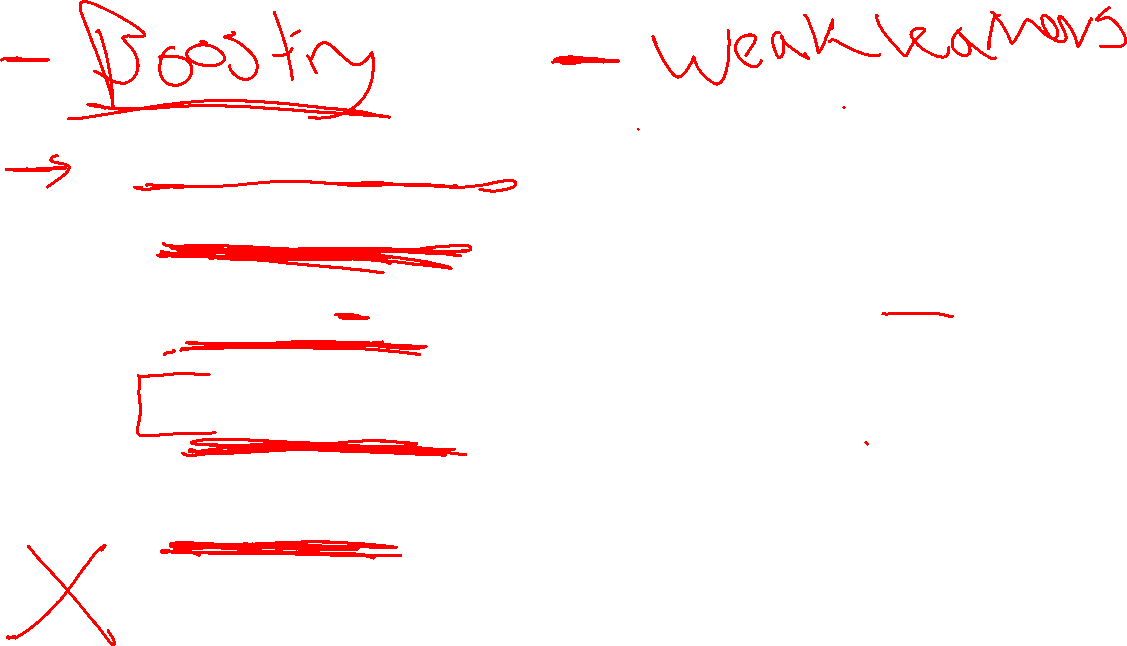 - Boosting
- weak learners
X